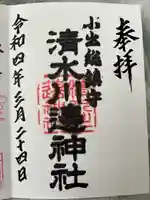 奉拝
小出総鎮守
清水川邉神社
令和四年三月二十四日